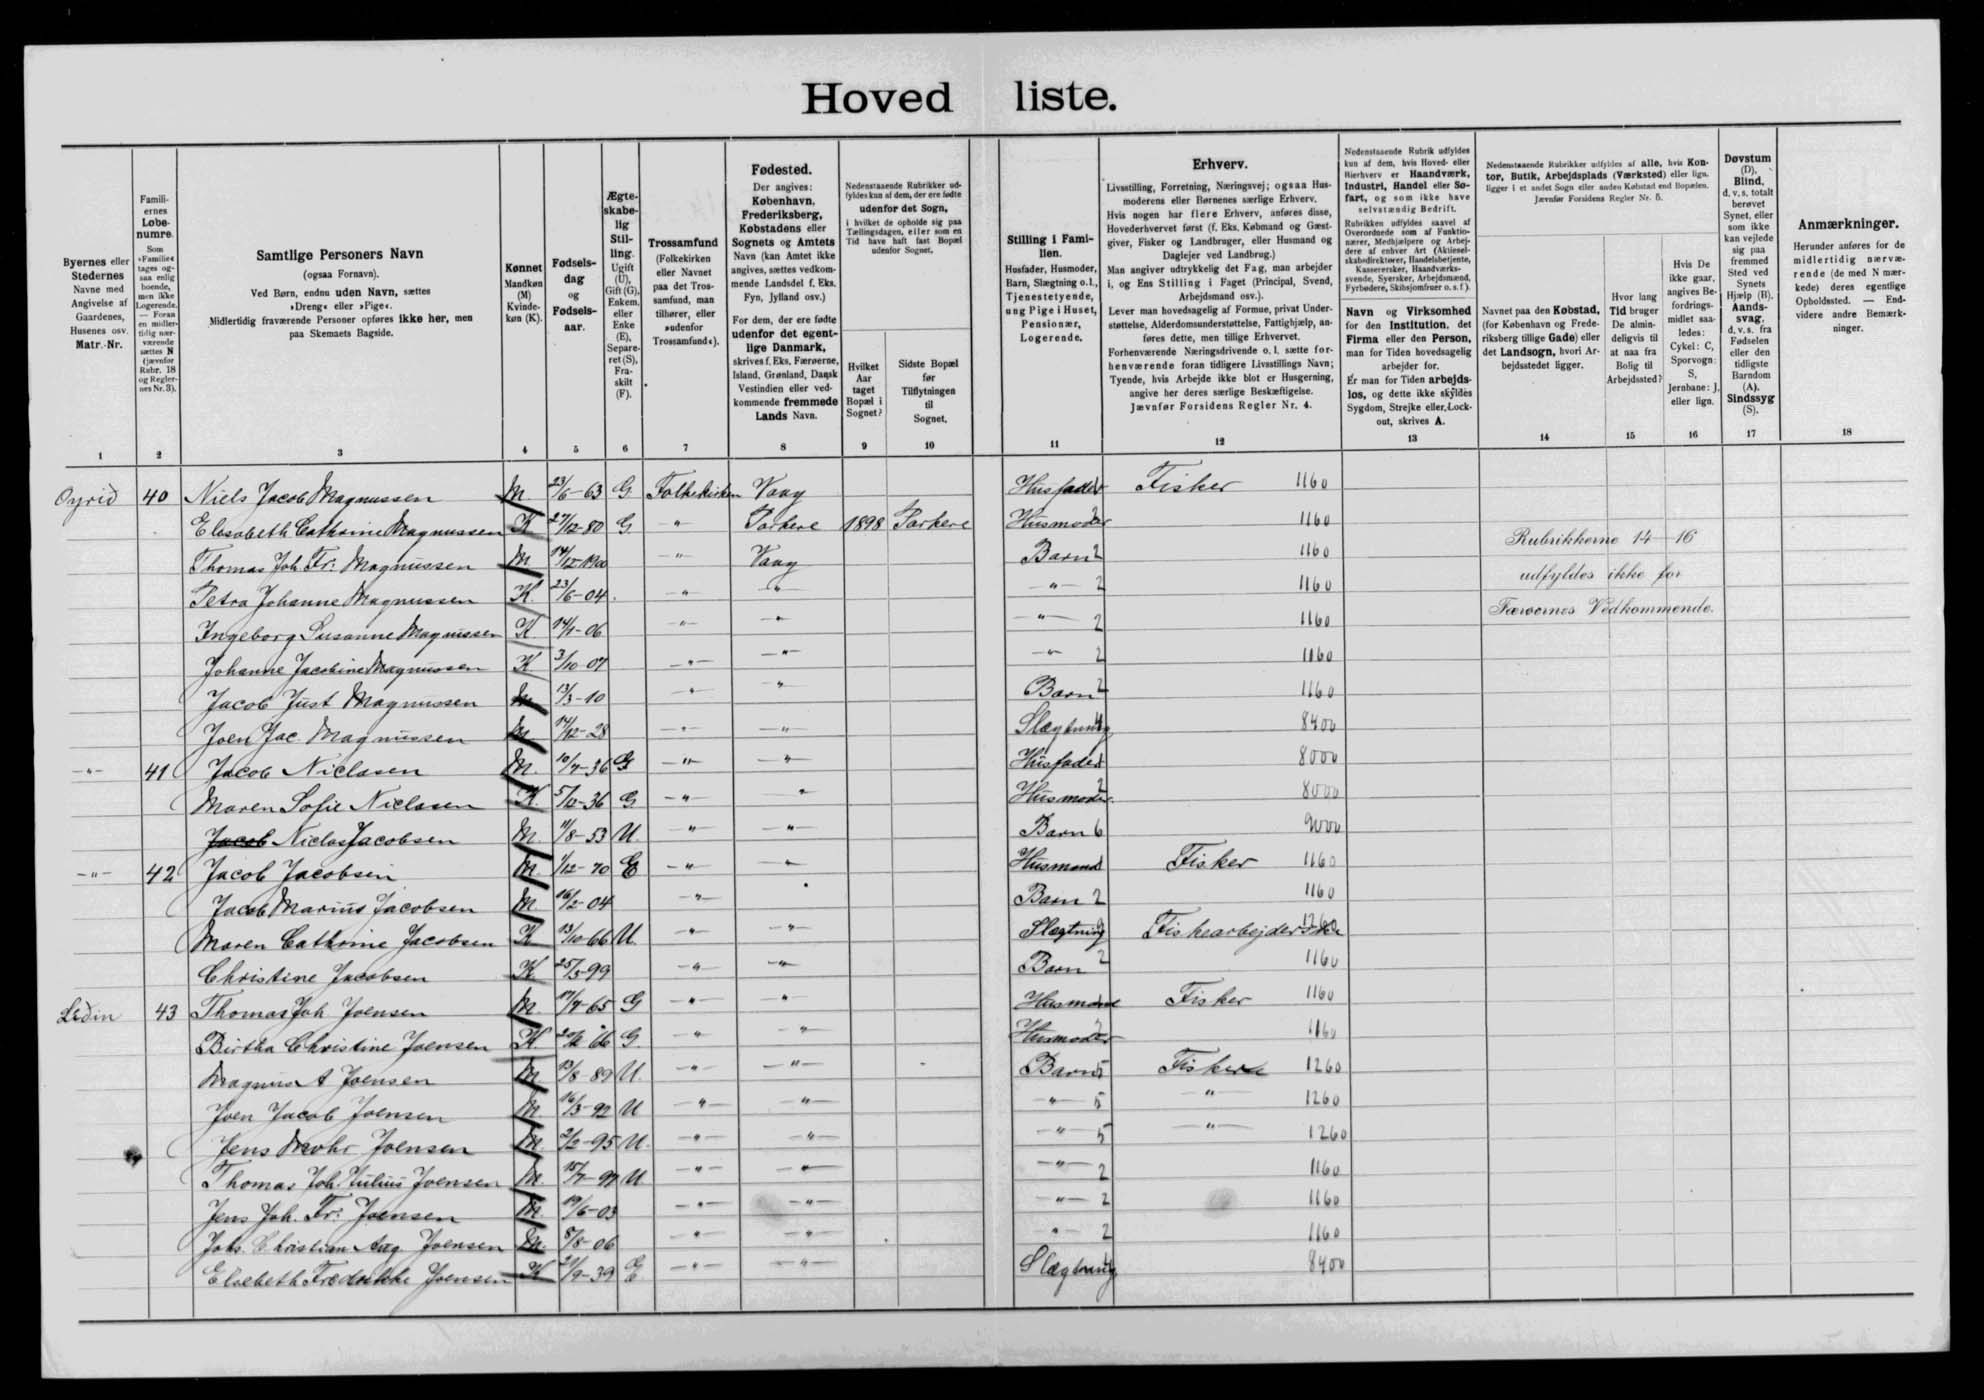 Hovedliste.
Byernes eller Stedernes Navne med Angivelse af Gaardenes, Husenes osv. Matr.-Nr.
Familiernes Løbenumre.
Som »Familie« tages ogsaa enlig boende, men ikke Logerende. — Foran en midlertidig nærværende sættes N (jævnfør Rubr. 18 og Reglernes Nr. 3).
Samtlige Personers Navn
(ogsaa Fornavn).
Ved Børn, endnu uden Navn, sættes
»Dreng« eller »Pige«.
Midlertidig fraværende Personer opføres ikke her, men
paa Skemaets Bagside.
Kønnet
Mandkøn (M)
Kvindekøn (K).
Fødselsdag
og
Fødselsaar.
Ægteskabelig Stilling.
Ugift (U), Gift (G), Enkem. eller Enke (E), Separeret (S), Fraskilt (F).
Trossamfund
(Folkekirken eller Navnet paa det Trossamfund, man tilhører, eller »udenfor Trossamfund«).
Fødested.
Der angives:
København, Frederiksberg, Købstadens eller Sognets og Amtets Navn (kan Amtet ikke angives, sættes vedkommende Landsdel f. Eks. Fyn, Jylland osv.)
For dem, der ere fødte udenfor det egentlige Danmark, skrives f. Eks. Færøerne, Island, Grønland, Dansk Vestindien eller vedkommende fremmede Lands Navn.
Nedenstaaende Rubrikker udfyldes kun af dem, der ere fødte
udenfor det Sogn,
i hvilket de opholde sig paa Tællingsdagen, eller som en Tid have haft fast Bopæl udenfor Sognet.
Hvilket Aar taget Bopæl i Sognet?
Sidste Bopæl før Tilflytningen til Sognet.
Stilling i Familien.
Husfader, Husmoder, Barn, Slægtning o. l., Tjenestetyende, ung Pige i Huset, Pensionær, Logerende.
Erhverv.
Livsstilling, Forretning, Næringsvej; ogsaa Husmoderens eller Børnenes særlige Erhverv.
Hvis nogen har flere Erhverv, anføres disse, Hovederhvervet først (f. Eks. Købmand og Gæstgiver, Fisker og Landbruger, eller Husmand og Daglejer ved Landbrug.)
Man angiver udtrykkelig det Fag, man arbejder i, og Ens Stilling i Faget (Principal, Svend, Arbejdsmand osv.).
Lever man hovedsagelig af Formue, privat Understøttelse, Alderdomsunderstøttelse, Fattighjælp, anføres dette, men tillige Erhvervet.
Forhenværende Næringsdrivende o. l. sætte forhenværende foran tidligere Livsstillings Navn; Tyende, hvis Arbejde ikke blot er Husgerning, angive her deres særlige Beskæftigelse.
Jævnfør Forsidens Regler Nr. 4.
Nedenstaaende Rubrik udfyldes kun af dem, hvis Hoved- eller Bierhverv er Haandværk, Industri, Handel eller Søfart, og som ikke have selvstændig Bedrift.
Rubrikken udfyldes saavel af Overordnede som af Funktionærer, Medhjælpere og Arbejdere af enhver Art (Aktieselskabsdirektører, Handelsbetjente, Kasserersker, Haandværkssvende, Syersker, Arbejdsmænd, Fyrbødere, Skibsjomfruer o. s. f.).
Navn og Virksomhed for den Institution, det Firma eller den Person, man for Tiden hovedsagelig arbejder for.
Er man for Tiden arbejdsløs, og dette ikke skyldes Sygdom, Strejke eller Lockout, skrives A.
Nedenstaaende Rubrikker udfyldes af alle, hvis Kontor, Butik, Arbejdsplads (Værksted) eller lign. ligger i et andet Sogn eller anden Købstad end Bopælen.
Jævnfør Forsidens Regler Nr. 5.
Navnet paa den Købstad, (for København og Frederiksberg tillige Gade) eller det Landsogn, hvori Arbejdsstedet ligger.
Hvor lang Tid bruger De almindeligvis til at naa fra Bolig til Arbejdssted?
Hvis De ikke gaar, angives Befordringsmidlet saaledes: Cykel: C, Sporvogn: S, Jernbane: J, eller lign.
Døvstum (D), Blind, d. v. s. totalt berøvet Synet, eller som ikke kan vejlede sig paa fremmed Sted ved Synets Hjælp (B), Aandssvag, d. v. s. fra Fødselen eller den tidligste Barndom (A). Sindssyg (S).
Anmærkninger.
Herunder anføres for de midlertidig nærværende (de med N mærkede) deres egentlige Opholdssted. — Endvidere andre Bemærkninger.
1 2 3 4 5 6 7 8 9 10 11 12 13 14 15 16 17 18
Oyrið 40 Niels Jacob Magnussen M 23/6-63 G Folkekirken Vaag Husfader 1 Fisker 1160
Elisabeth Cathrine Magnussen K 27/12-80 G -"- Porkere 1898 Porkere Husmoder 2 1160
Rubrikkerne 14-16
Thomas Joh. Fr: Magnussen M 14/12-1900 -"- Vaag Barn 2 1160
udfyldes ikke for
Petra Johanne Magnussen K. 23/6-04. -"- -"- -"- 2 1160
Færøernes Vedkommende.
Ingeborg Susanne Magnussen K 14/1-06 -"- -"- -"- 2 1160
Johanne Jacobine Magnussen K 3/10-07 -"- -"- -"- 2 1160
Jacob Just Magnussen M 13/3-10 -"- -"- Barn 2 1160
Joen Jac. Magnussen M. 14/12-28 -"- -"- Slægtning 4 8400
-"- 41 Jacob Niclasen M. 10/4-36 G -"- -"- Husfader 1 8000
Maren Sofie Niclasen K. 5/12-36 G -"- -"- Husmoder 2 8000
Jacob Niclas Jacobsen M. 11/8-53 U. -"- -"- Barn 6 9000
-"- 42 Jacob Jacobsen M. 1/12-70 E -"- -"- Husmand 1 Fisker 1160
Jacob Marius Jacobsen M. 16/2-04 -"- " Barn 2 1160
Maren Cathrine Jacobsen K 13/10-66 U. -"- -"- Slægtning Fiskearbejderske 1260
Christine Jacobsen K. 25/3-99 -"- -"- Barn 2 1160
Liðin 43 Thomas Joh Joensen M. 17/4-65 G -"- -"- Husmand 1 Fisker 1160
Birtha Christine Joensen K. 66 G. -"- -"- Husmoder 2 1160
Magnus A Joensen M 13/8-89 U. -"- -"- Barn 5 Fisker 1260
Joen Jacob Joensen M. 16/3-92 U -"- -"- -"- 5 -"- 1260
Jens Mohr Joensen M. 2/2-95 U. -"- -"- -"- 5 -"- 1260
Thomas Joh. Julius Joensen M. 15/7-97 U -"- -"- -"- 2 1160
Jens Joh. Fr: Joensen M. 19/6-03 -"- -"- -"- 2 1160
Johs. Christian Aug. Joensen M. 8/8-06 -"- -"- -"- 2 1160
Elsebeth Fredrikke Joensen K 21/9-39 E -"- -"- Slægtning 4 8400